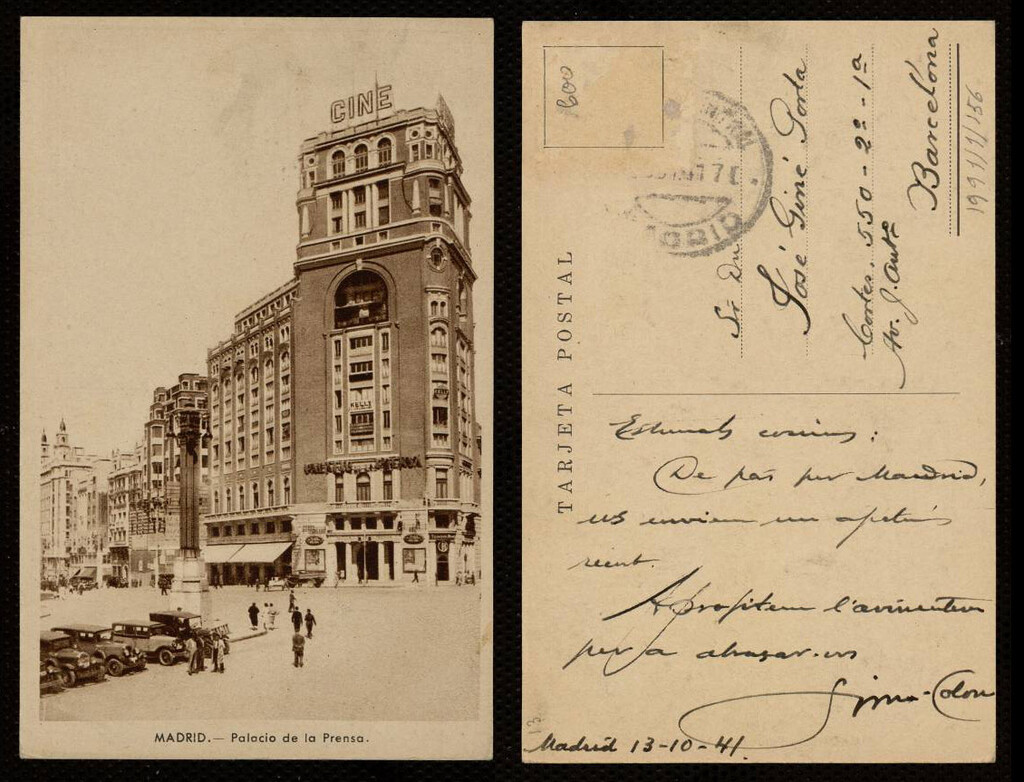 CINE
KELLY
MADRID.— Palacio de la Prensa.
600
TARJETA POSTAL
MADRID
Sr Dn
José Giné Porta
Cortes. 550-2º-1ª
Av. J. Antº
Barcelona
1991/1/156
Estimats cosins:
De pas per Madrid,
us enviem un
Aprofitem l'avinentesa
per a abraçar-vos
Madrid 13-10-41.